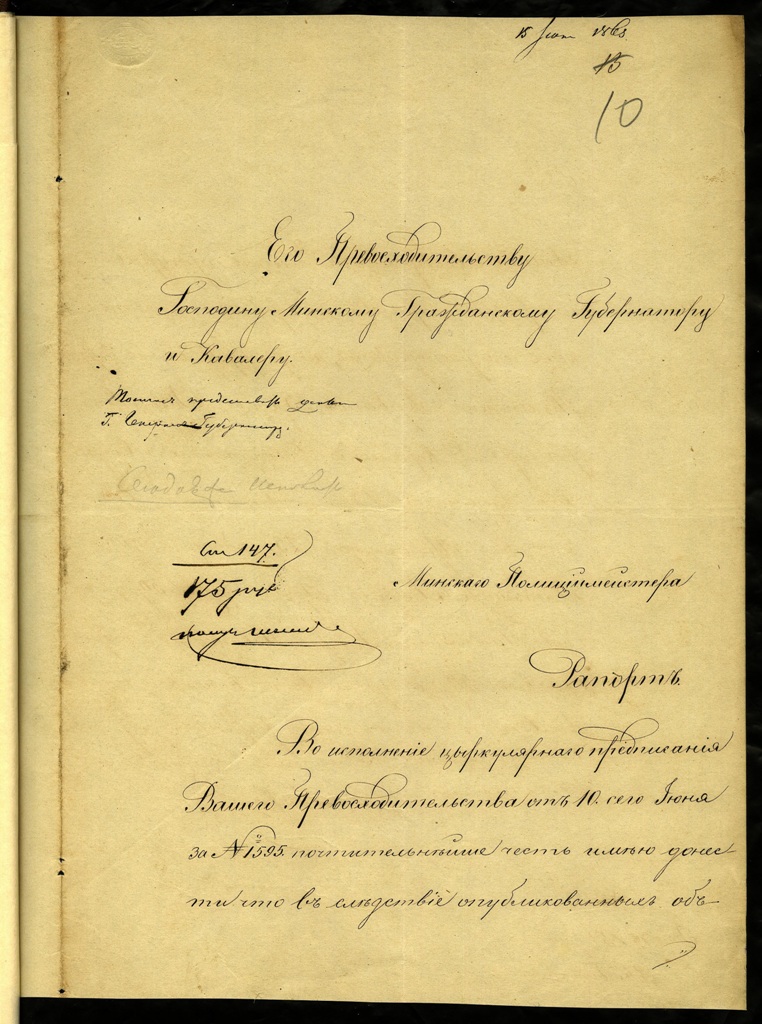 15
10
Его Превосходительству
Господину Минскому Гражданскому Губернатору
и Кавалеру.
Г. Губернатору.
Ст 147.
175 руб
Минскаго Полицiймейстера
Рапортъ.
Во исполненiе цыркулярнаго предписанiя
Вашего Превосходительства отъ 10. сего Iюня
за № 1595. почтительнѣйше честь имѣю донес-
ти что въ слѣдствiе опубликованныхъ объ-